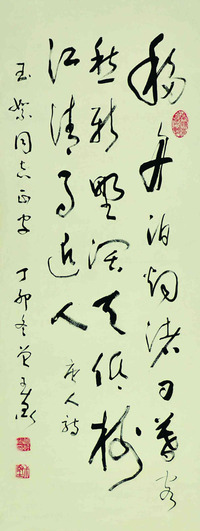 移舟泊烟渚日暮客
愁新野旷天低树
江清月近人 唐人诗
玉 同志正字 丁卯冬